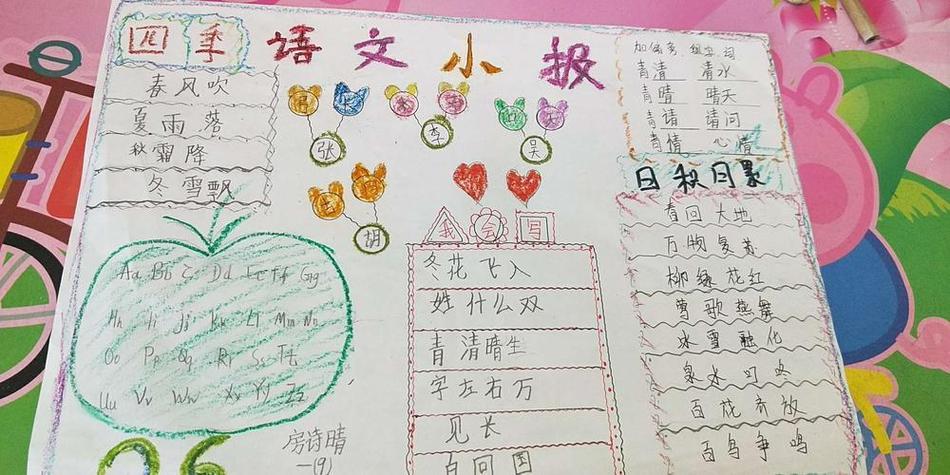 四季
语文小报
春风吹
夏雨落
秋霜降
冬雪飘
弓长
张
木子
李
口天
吴
古月
胡
加偏旁 组空词
青清 清水
青晴 晴天
青请 请问
青情 心情
日积月累
春回大地
万物复苏
柳绿花红
莺歌燕舞
冰雪融化
泉水叮咚
百花齐放
百鸟争鸣
我会写
冬花飞入
姓什么双
青清晴生
字左右万
见长
百回国
Aa Bb Cc Dd Ee Ff Gg
Hh Ii Jj Kk Ll Mm Nn
Oo Pp Qq Rr Ss Tt
Uu Vv Ww Xx Yy Zz
26
房诗晴
一(9)